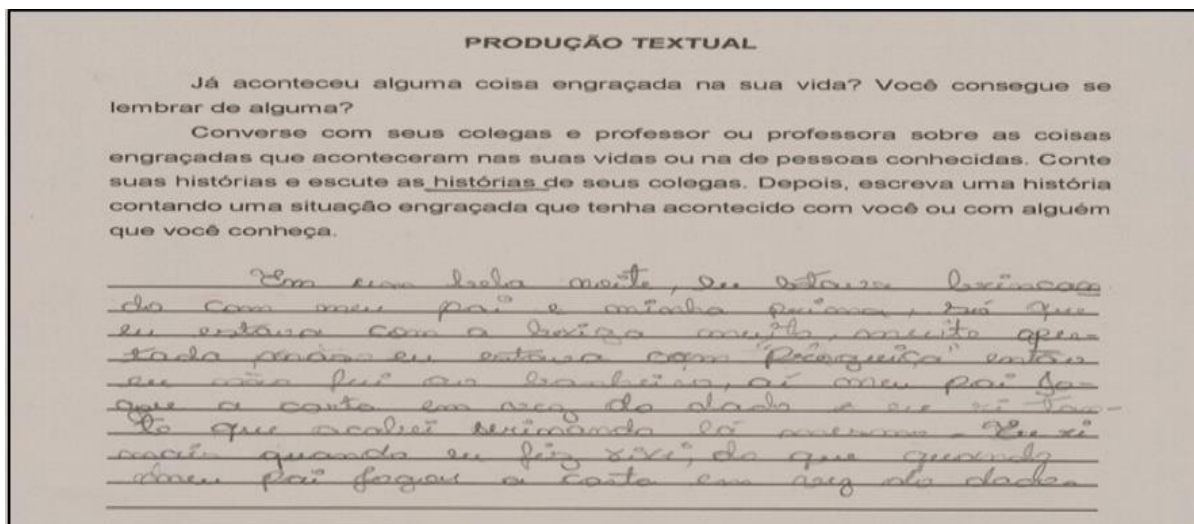 PRODUÇÃO TEXTUAL
Já aconteceu alguma coisa engraçada na sua vida? Você consegue se
lembrar de alguma?
Converse com seus colegas e professor ou professora sobre as coisas
engraçadas que aconteceram nas suas vidas ou na de pessoas conhecidas. Conte
suas histórias e escute as histórias de seus colegas. Depois, escreva uma história
contando uma situação engraçada que tenha acontecido com você ou com alguém
que você conheça.
Em uma bela noite, eu estava brincan
do com meu pai e minha prima, só que
eu estava com a bexiga muito, muito aper-
tada, mas eu estava com "preguiça" então
eu não fui ao banheiro, aí meu pai jo-
gou a carta em vez do dado e eu ri tan-
to que acabei lá mesmo. Eu ri
mais quando eu fiz xixi, do que quando
meu pai jogou a carta em vez do dado.